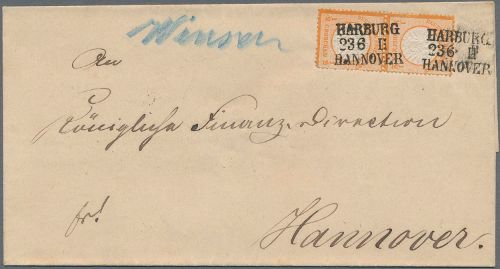 Winsen
HARBURG
23 6 II
HANNOVER
HARBURG
23 6 II
HANNOVER
An
Königliche Finanz-Direction
fr.
Hannover.